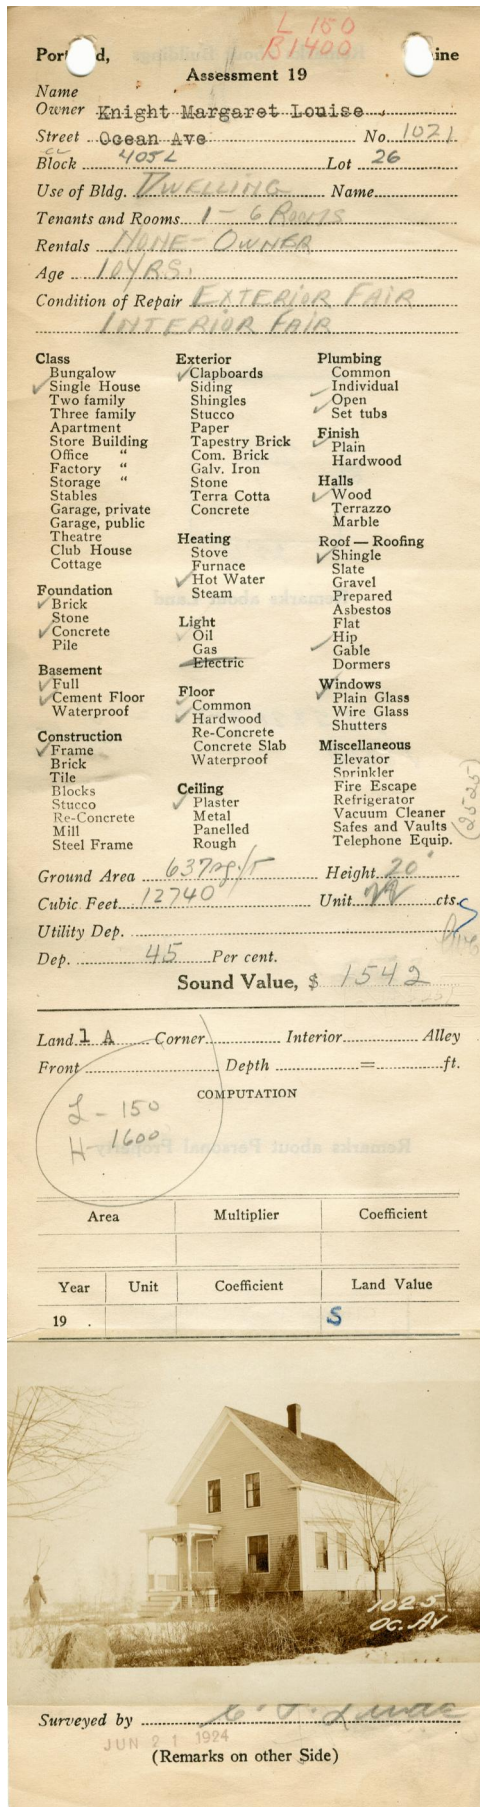 L 150
B 1400
Port d, ine
Assessment 19
Name
Owner Knight Margaret Louise
Street Ocean Ave No. 1021
Block 405 L Lot 26
Use of Bldg. DWELLING Name
Tenants and Rooms 1 - 6 ROOMS
Rentals NONE - OWNER
Age 10 YRS.
Condition of Repair EXTERIOR FAIR
INTERIOR FAIR
Class
Bungalow
Single House
Two family
Three family
Apartment
Store Building
Office "
Factory "
Storage "
Stables
Garage, private
Garage, public
Theatre
Club House
Cottage
Foundation
Brick
Stone
Concrete
Pile
Basement
Full
Cement Floor
Waterproof
Construction
Frame
Brick
Tile
Blocks
Stucco
Re-Concrete
Mill
Steel Frame
Exterior
Clapboards
Siding
Shingles
Stucco
Paper
Tapestry Brick
Com. Brick
Galv. Iron
Stone
Terra Cotta
Concrete
Heating
Stove
Furnace
Hot Water
Steam
Light
Oil
Gas
Electric
Floor
Common
Hardwood
Re-Concrete
Concrete Slab
Waterproof
Ceiling
Plaster
Metal
Panelled
Rough
Plumbing
Common
Individual
Open
Set tubs
Finish
Plain
Hardwood
Halls
Wood
Terrazzo
Marble
Roof — Roofing
Shingle
Slate
Gravel
Prepared
Asbestos
Flat
Hip
Gable
Dormers
Windows
Plain Glass
Wire Glass
Shutters
Miscellaneous
Elevator
Sprinkler
Fire Escape
Refrigerator
Vacuum Cleaner
Safes and Vaults
Telephone Equip.
(2525)
Ground Area 637 sq. ft Height 20'
Cubic Feet 12740 Unit 22 cts.
Utility Dep.
Dep. 45 Per cent.
Sound Value, $ 1542
Land 1 A Corner Interior Alley
Front Depth = ft.
COMPUTATION
L - 150
H - 1600
Area Multiplier Coefficient
Year Unit Coefficient Land Value
19 . S
1025
OC. AV
Surveyed by
JUN 21 1924
(Remarks on other Side)